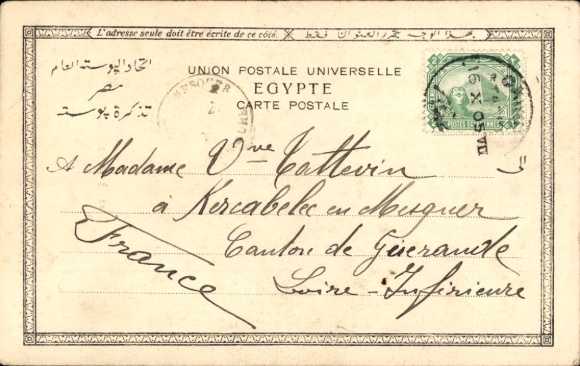 L'adresse seule doit être écrite de ce côté. بهذا الوجه يحرر العنوان فقط
اتحاد البوستة العام
مصر
تذكرة بوستة
UNION POSTALE UNIVERSELLE
EGYPTE
CARTE POSTALE
MESQUER
POSTES EGYPTIENNES
X 05
À Madame Vve Tattevin
à Kercabelec en Mesquer
Canton de Guérande
Loire-Inférieure
France